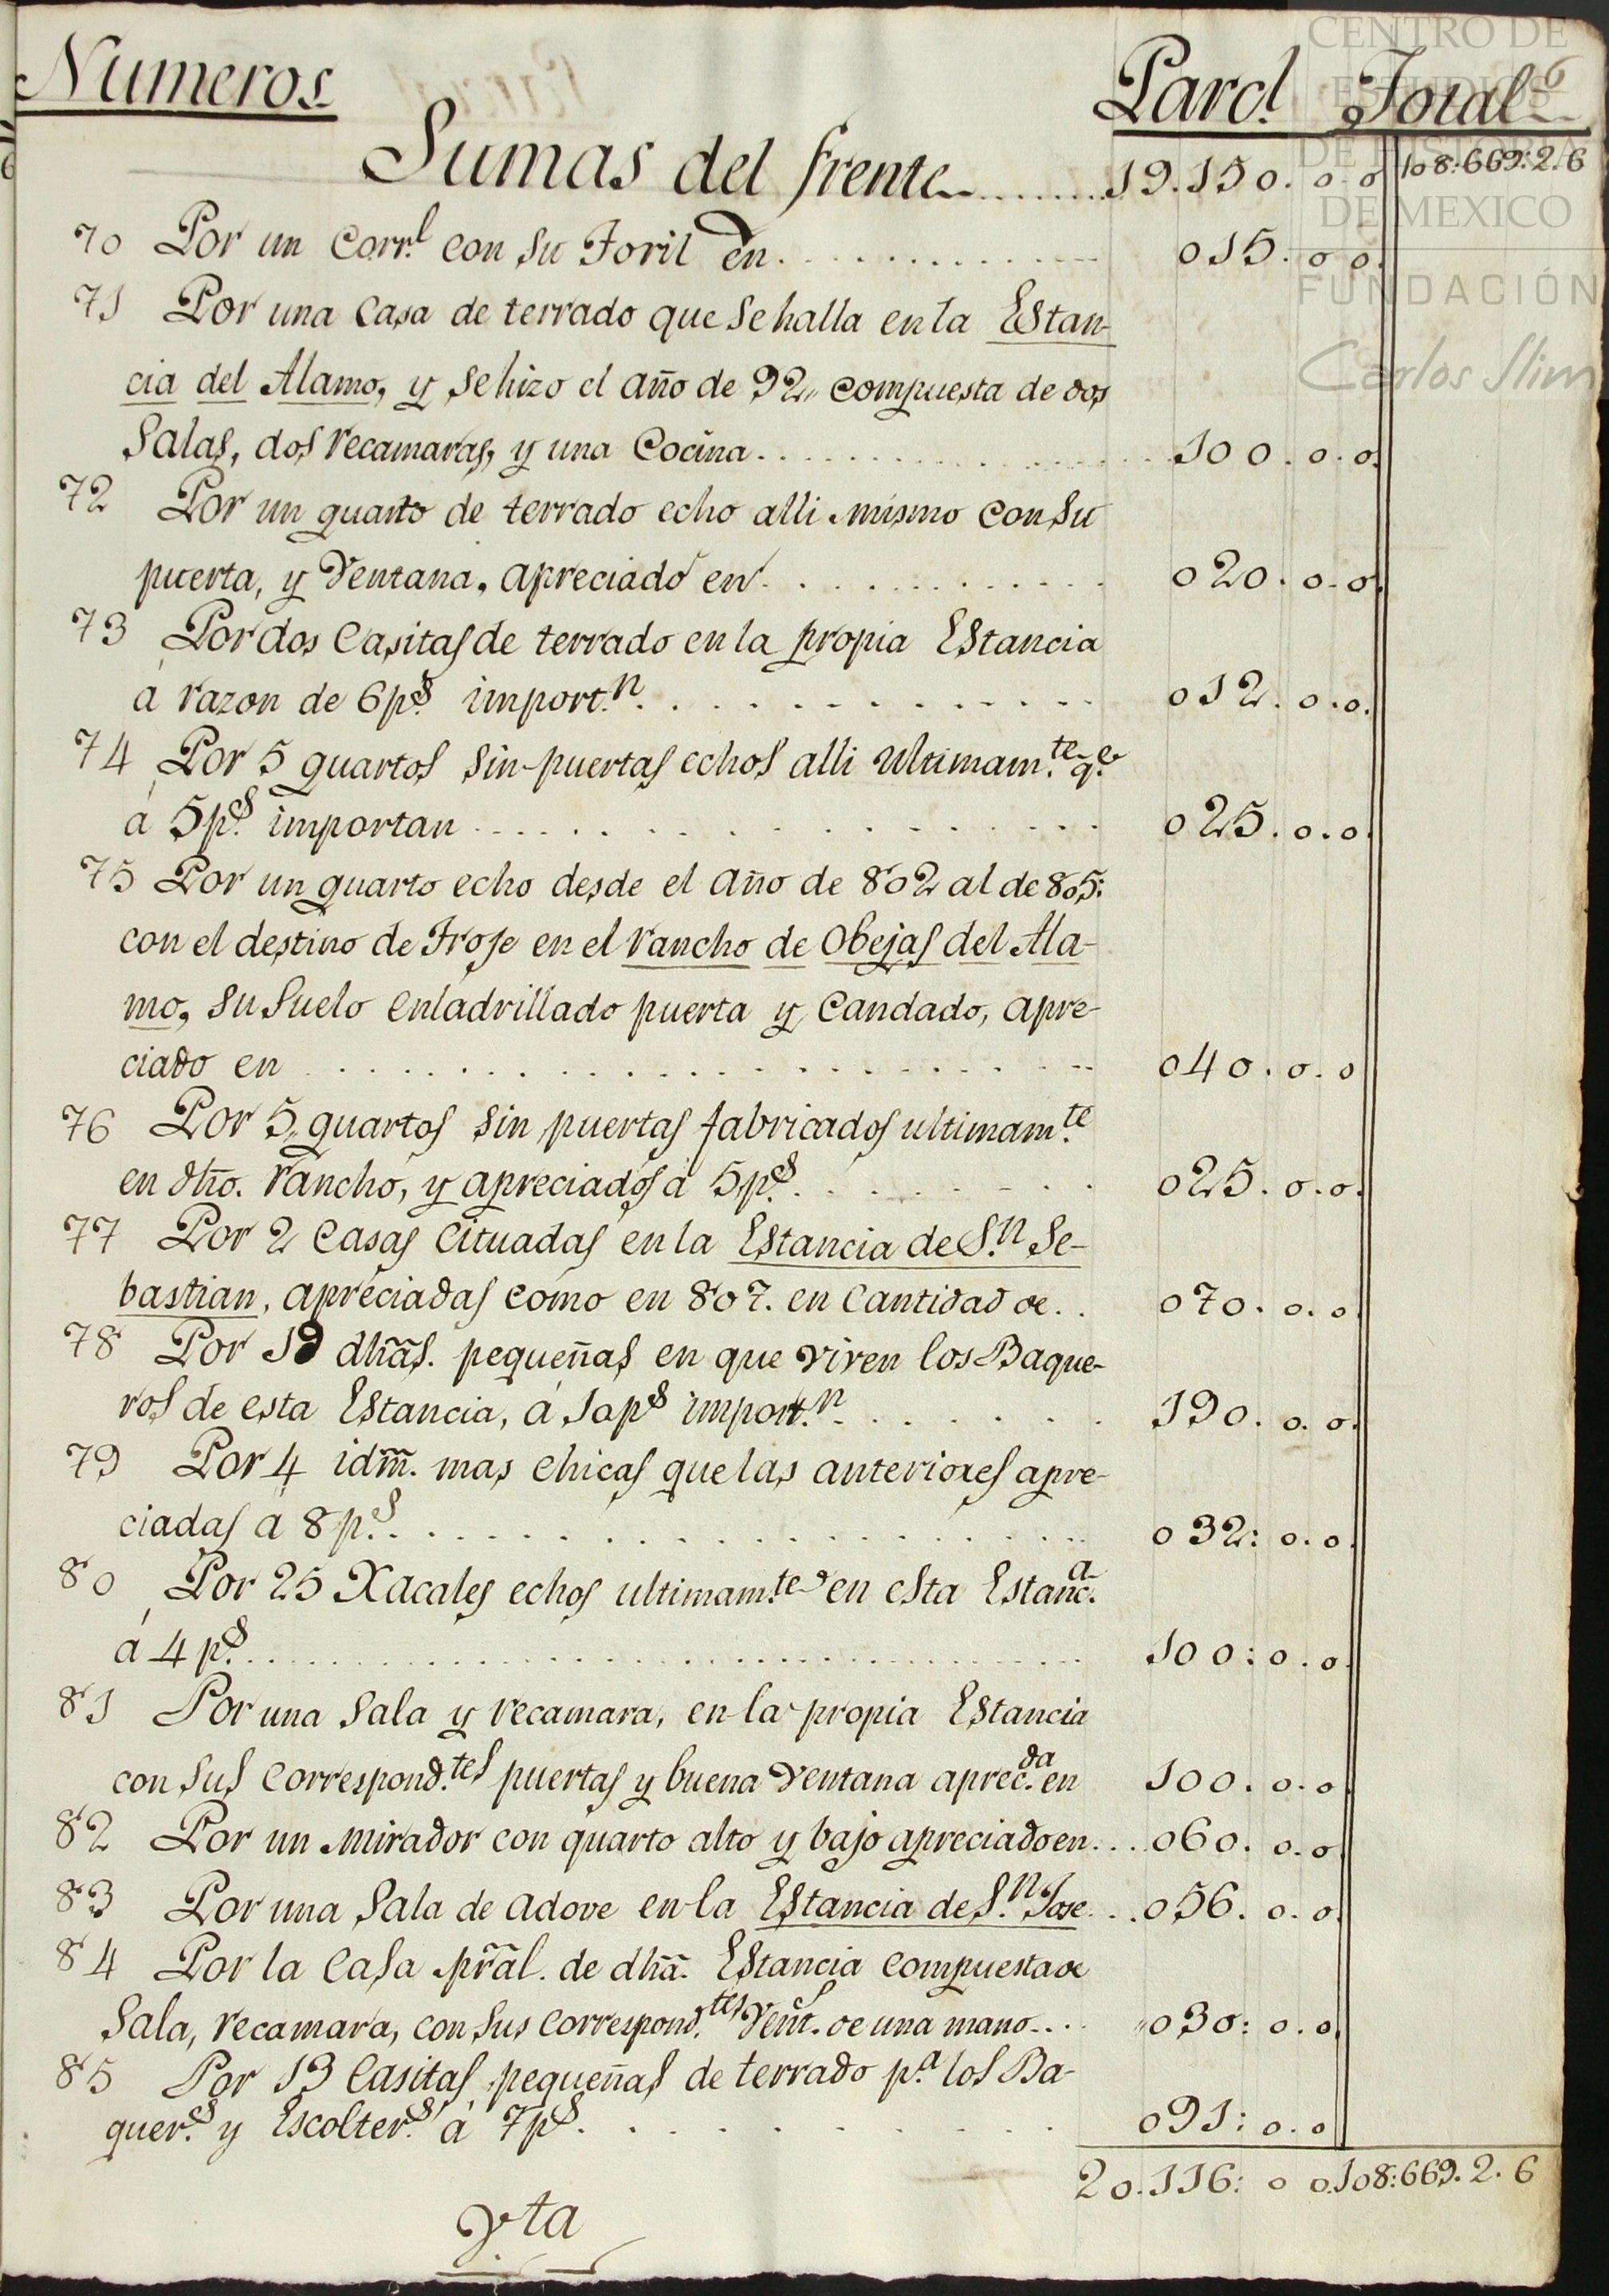 Numeros Parcl. Total.s 6
Sumas del frente 19.150. o. o 108:669:2.6
70 Por un Corr.l con su Toril en 015. o o.
71 Por una Casa de terrado que se halla en la Estan-
cia del Alamo, y se hizo el año de 92,, compuesta de dos
Salas, dos recamaras, y una Cocina 100. o. o.
72 Por un quarto de terrado echo alli mismo con su
puerta, y Ventana, apreciado en 020. o. o.
73 Por dos Casitas de terrado en la propia Estancia
á razon de 6 p.s import.n 012. o. o.
74 Por 5 quartos sin puertas echos alli ultimam.te q.e
á 5 p.s importan 025. o. o.
75 Por un quarto echo desde el año de 802 al de 805:
con el destino de Troje en el rancho de Obejas del Ala-
mo, su suelo enladrillado puerta y Candado, apre-
ciado en 040. o. o
76 Por 5,, quartos sin puertas fabricados ultimam.te
en dho. rancho, y apreciados á 5 p.s 025. o. o.
77 Por 2 Casas cituadas en la Estancia de S.n Se-
bastian, apreciadas como en 807. en Cantidad de 070. o. o.
78 Por 19 dhas. pequeñas en que viven los Baque-
ros de esta Estancia, á 10 p.s import.n 190. o. o.
79 Por 4 idm. mas chicas que las anteriores apre-
ciadas á 8 p.s 032: o. o.
80 Por 25 Xacales echos ultimam.te en esta Estanc.a
á 4 p.s 100: o. o.
81 Por una Sala y recamara, en la propia Estancia
con sus correspond.tes puertas y buena Ventana aprec.da en 100. o. o.
82 Por un mirador con quarto alto y bajo apreciado en 060. o. o.
83 Por una Sala de adove en la Estancia de S.n Jose 056. o. o.
84 Por la Casa pral. de dha. Estancia compuesta de
Sala, recamara, con sus correspond.tes Vent.s de una mano 030: o. o.
85 Por 13 Casitas pequeñas de terrado p.a los Ba-
quer.s y Escolter.s á 7 p.s 091: o. o
20.116: o o. 108:669. 2. 6
V.ta
CENTRO DE
ESTUDIOS
DE HISTORIA
DE MEXICO
FUNDACIÓN
Carlos Slim